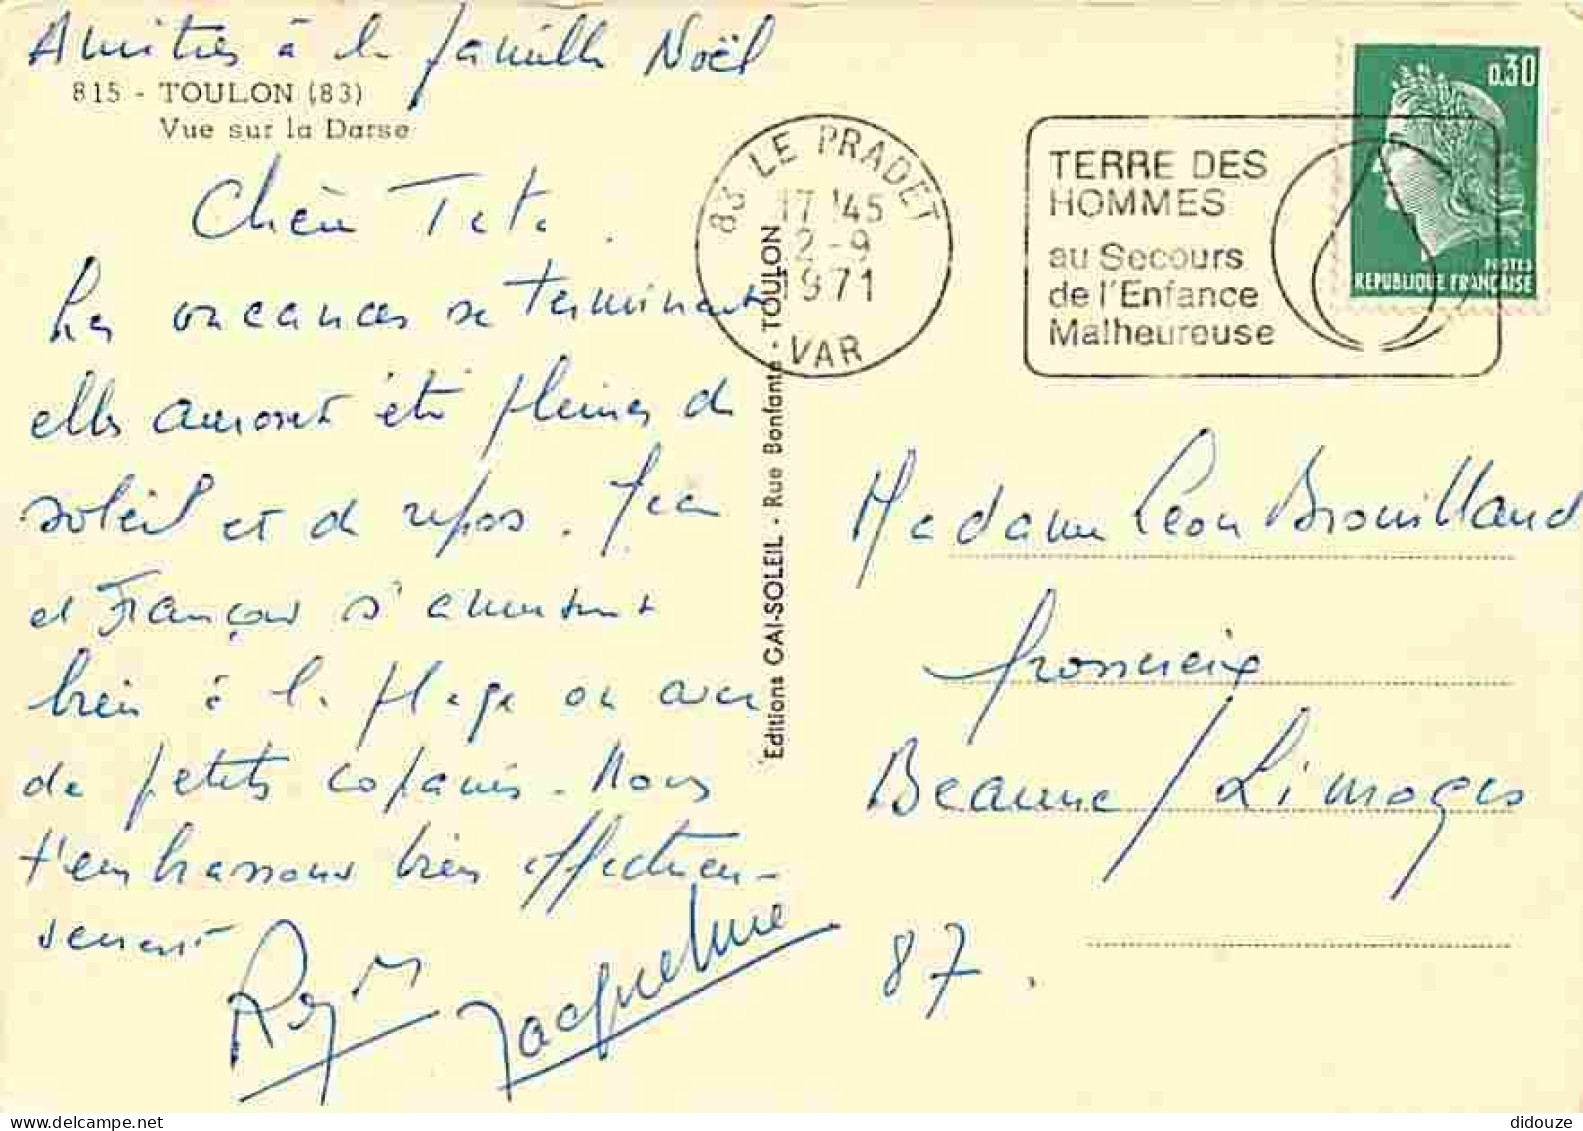 Amitiés à la famille Noël
815 - TOULON (83)
Vue sur la Darse
Chère Tata.
Les vacances se terminent
elles auront été pleines de
soleil et de repos. Jean
et François s'amusent
bien à la plage on avec
de petits copains. Nous
t'embrassons bien affectueu-
sement
Jacqueline
Editions GAI-SOLEIL - Rue Bonfante - TOULON
83 LE PRADET
17 H 45
2-9
1971
VAR
TERRE DES
HOMMES
au Secours
de l'Enfance
Malheureuse
0,30
POSTES
REPUBLIQUE FRANÇAISE
Madame Léon Brouillaud
Beaune / Limoges
87.
didouze